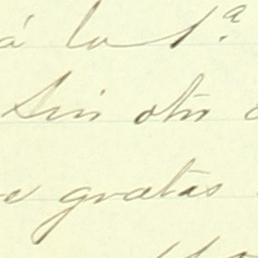 á la 1.ª
Sin otro
gratas